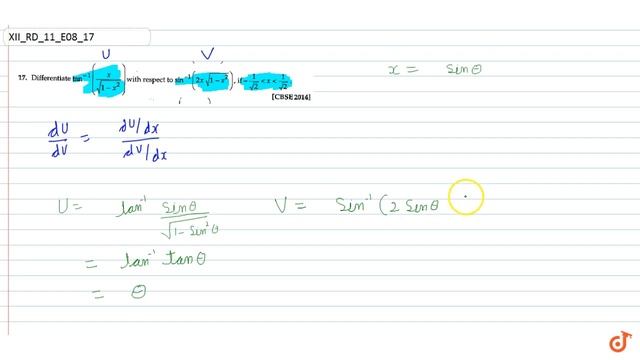 XII_RD_11_E08_17
U V
17. Differentiate tan⁻¹(x/√(1−x²)) with respect to sin⁻¹(2x√(1−x²)), if −1/√2 < x < 1/√2.
[CBSE 2014]
x = Sinθ
dU/dV = (dU/dx)/(dV/dx)
U = tan⁻¹ Sinθ/√(1−Sin²θ) V = Sin⁻¹(2 Sinθ
= tan⁻¹ tanθ
= θ